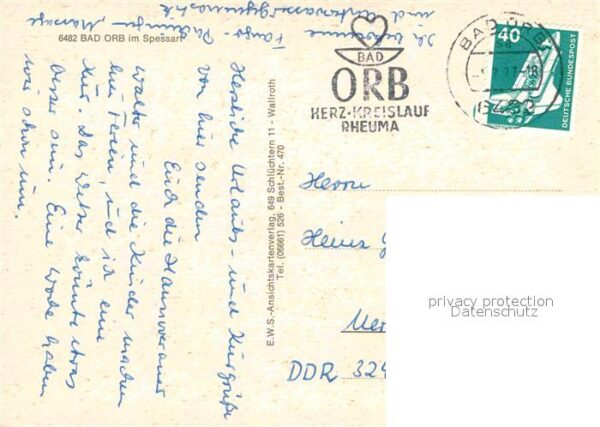 6482 BAD ORB im Spessart
Herzliche Urlaubs- und Kurgrüße
von hier senden
Euch die Hannoveraner
Walter und die Kinder machen
hier Ferien, und ich eine
Kur. Das Wetter könnte etwas
besser sein. Eine Woche haben
wir schon um.
Ich bekomme
Fango Packungen Massage
und Unterwassergymnastik
E.W.S.-Ansichtskartenverlag, 649 Schlüchtern 11 - Wallroth
Tel. (06661) 526 - Best.-Nr. 470
BAD
ORB
HERZ-KREISLAUF
RHEUMA
BAD ORB
40
DEUTSCHE BUNDESPOST
Herrn
Heinz
DDR 324
privacy protection
Datenschutz